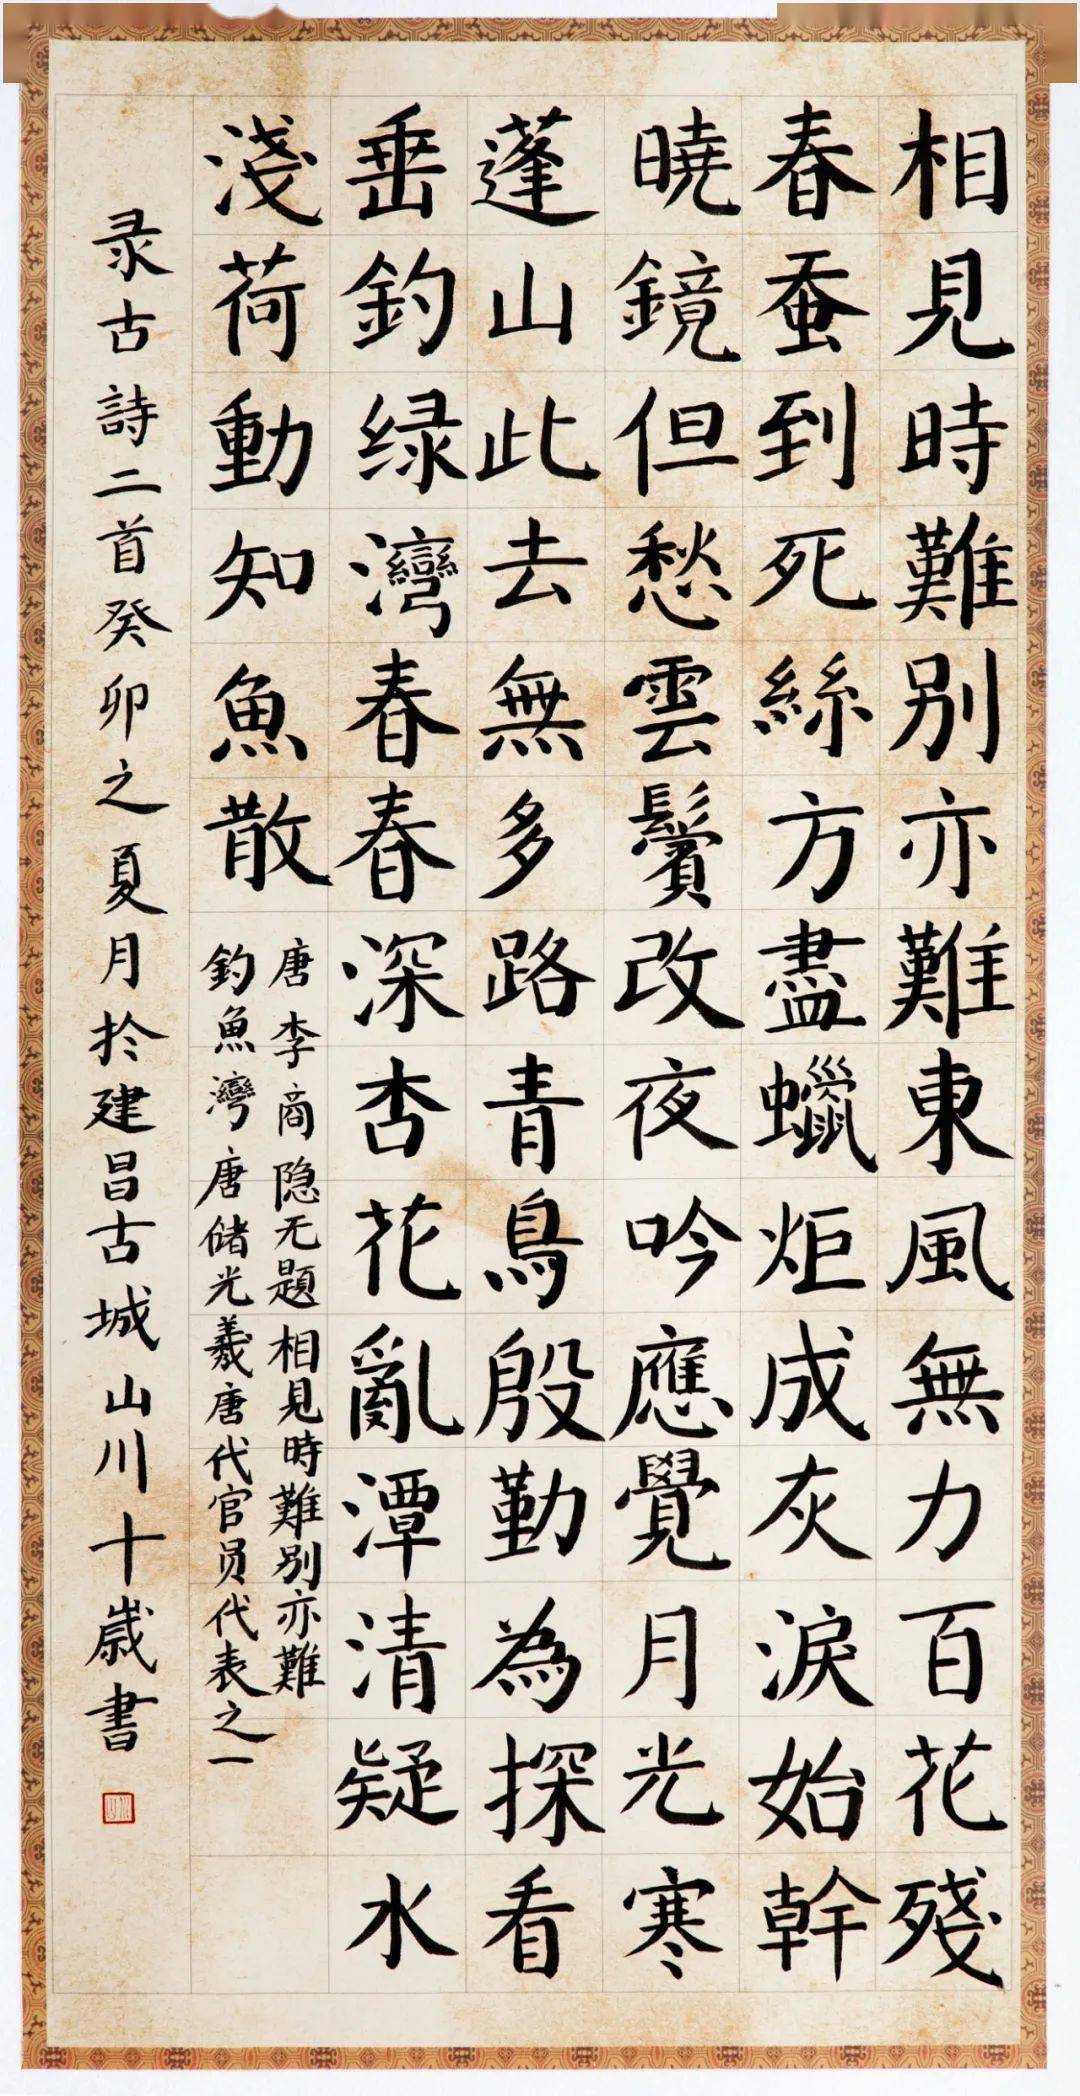 相見時難别亦難東風無力百花殘
春蚕到死絲方盡蠟炬成灰淚始幹
曉鏡但愁雲鬢改夜吟應覺月光寒
蓬山此去無多路青鳥殷勤為探看
垂釣绿灣春春深杏花亂潭清疑水
淺荷動知魚散
唐李商隐无題相見時難别亦難
釣魚灣唐储光羲唐代官员代表之一
录古詩二首癸卯之夏月於建昌古城山川十歲書